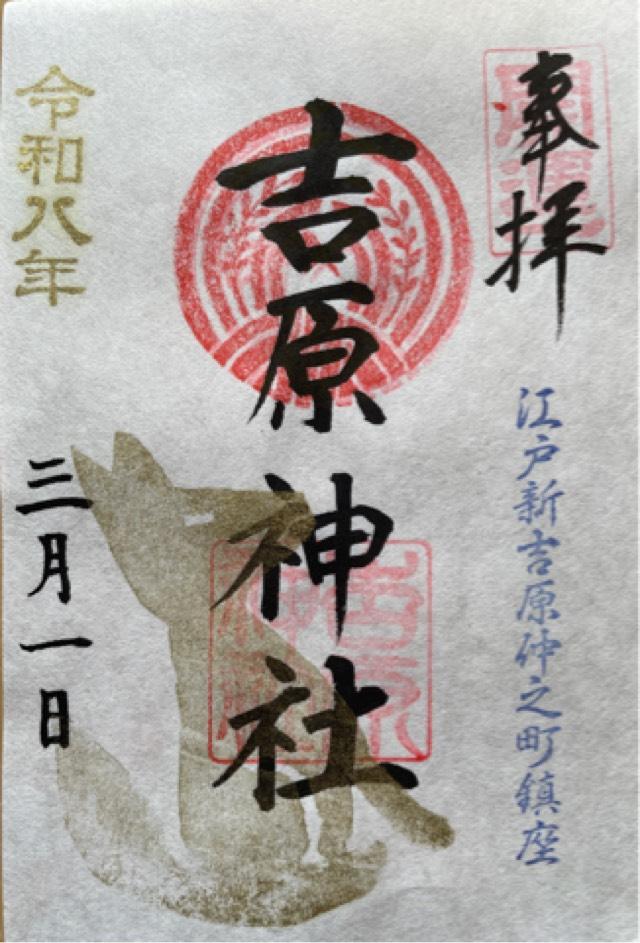 奉拝
開運
江戸新吉原仲之町鎮座
吉原神社
吉原神社
令和八年
三月一日